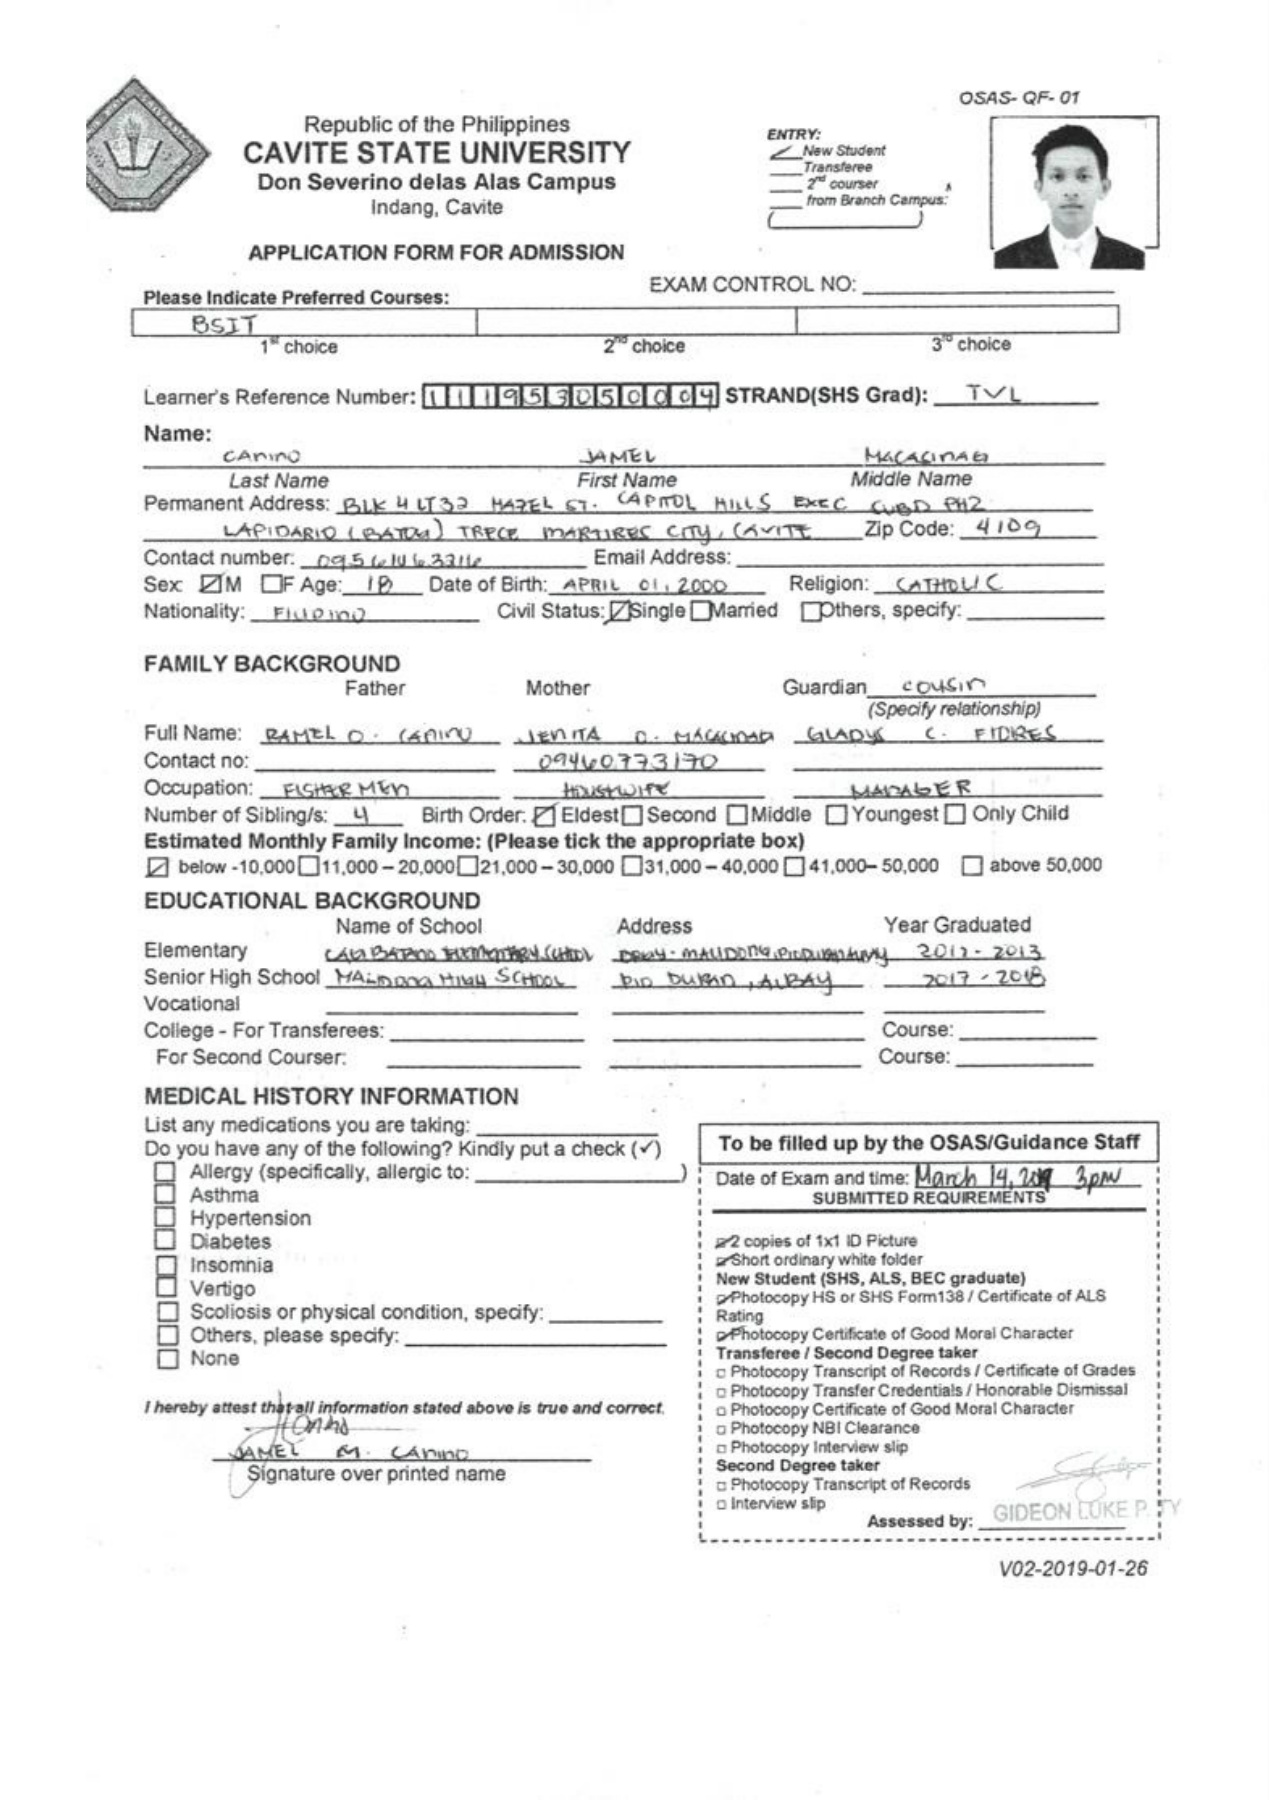 OSAS- QF- 01
Republic of the Philippines
CAVITE STATE UNIVERSITY
Don Severino delas Alas Campus
Indang, Cavite
ENTRY:
New Student
Transferee
2nd courser
from Branch Campus:
APPLICATION FORM FOR ADMISSION
EXAM CONTROL NO:
Please Indicate Preferred Courses:
BSIT
1st choice 2nd choice 3rd choice
Learner's Reference Number: 111953050004 STRAND(SHS Grad): TVL
Name:
CANINO JAMEL MACASINAG
Last Name First Name Middle Name
Permanent Address: BLK 4 LT32 HAZEL ST. CAPITOL HILLS EXEC SUBD PH2
LAPIDARIO TRECE MARTIRES CITY, CAVITE Zip Code: 4109
Contact number: Email Address:
Sex: ☑M ☐F Age: 18 Date of Birth: APRIL 01, 2000 Religion: CATHOLIC
Nationality: FILIPINO Civil Status: ☑Single ☐Married ☐Others, specify:
FAMILY BACKGROUND
Father Mother Guardian COUSIN
(Specify relationship)
Full Name: RAMEL O. CANINO JENITA O. MACASINAG GLADYS C. FIDRES
Contact no: 09460773170
Occupation: FISHERMEN HOUSEWIFE MANAGER
Number of Sibling/s: 4 Birth Order: ☑ Eldest ☐ Second ☐ Middle ☐ Youngest ☐ Only Child
Estimated Monthly Family Income: (Please tick the appropriate box)
☑ below -10,000 ☐ 11,000 – 20,000 ☐ 21,000 – 30,000 ☐ 31,000 – 40,000 ☐ 41,000– 50,000 ☐ above 50,000
EDUCATIONAL BACKGROUND
Name of School Address Year Graduated
Elementary ELEMENTARY SCHOOL 2012 - 2013
Senior High School HIGH SCHOOL PIO DURAN, ALBAY 2017 - 2018
Vocational
College - For Transferees: Course:
For Second Courser: Course:
MEDICAL HISTORY INFORMATION
List any medications you are taking:
Do you have any of the following? Kindly put a check (✓)
☐ Allergy (specifically, allergic to: )
☐ Asthma
☐ Hypertension
☐ Diabetes
☐ Insomnia
☐ Vertigo
☐ Scoliosis or physical condition, specify:
☐ Others, please specify:
☐ None
I hereby attest that all information stated above is true and correct.
JAMEL M. CANINO
Signature over printed name
To be filled up by the OSAS/Guidance Staff
Date of Exam and time: March 14, 2019 3pm
SUBMITTED REQUIREMENTS
☑2 copies of 1x1 ID Picture
☑Short ordinary white folder
New Student (SHS, ALS, BEC graduate)
☑Photocopy HS or SHS Form138 / Certificate of ALS
Rating
☑Photocopy Certificate of Good Moral Character
Transferee / Second Degree taker
☐ Photocopy Transcript of Records / Certificate of Grades
☐ Photocopy Transfer Credentials / Honorable Dismissal
☐ Photocopy Certificate of Good Moral Character
☐ Photocopy NBI Clearance
☐ Photocopy Interview slip
Second Degree taker
☐ Photocopy Transcript of Records
☐ Interview slip
Assessed by: GIDEON LUKE P. TY
V02-2019-01-26